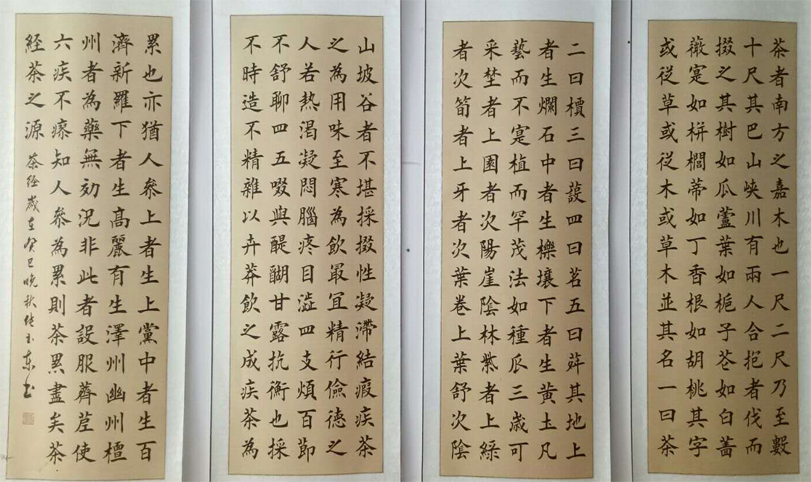 茶者南方之嘉木也一尺二尺乃至數
十尺其巴山峽川有兩人合抱者伐而
掇之其樹如瓜蘆葉如梔子花如白薔
薇寔如栟櫚蒂如丁香根如胡桃其字
或從草或從木或草木並其名一曰茶
二曰檟三曰蔎四曰茗五曰荈其地上
者生爛石中者生櫟壤下者生黃土凡
藝而不寔植而罕茂法如種瓜三歲可
采埜者上園者次陽崖陰林紫者上綠
者次筍者上牙者次葉卷上葉舒次陰
山坡谷者不堪採掇性凝滯結瘕疾茶
之為用味至寒為飲最宜精行儉德之
人若熱渴凝悶腦疼目澁四支煩百節
不舒聊四五啜與醍醐甘露抗衡也採
不時造不精雜以卉莽飲之成疾茶為
累也亦猶人參上者生上黨中者生百
濟新羅下者生高麗有生澤州幽州檀
州者為藥無効況非此者設服薺苨使
六疾不瘳知人參為累則茶累盡矣茶
經茶之源 茶经歲在癸巳晚秋